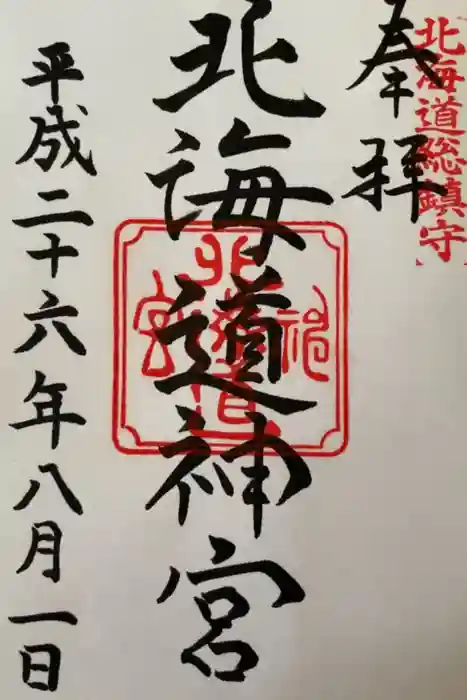 北海道総鎮守
奉拝
北海道神宮
平成二十六年八月一日